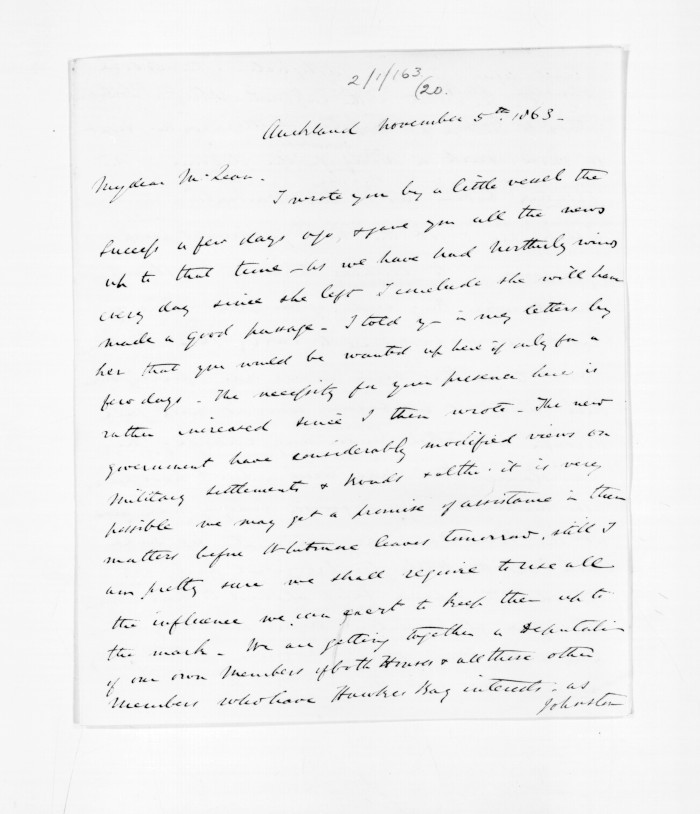 2/1/163
(20.
Auckland November 5th 1863-
My dear McLean.
I wrote you by a little vessel the
Success a few days ago, & gave you all the news
up to that time - as we have had Northerly winds
every day since she left I conclude she will have
made a good passage - I told you in my letters by
her that you would be wanted up here if only for a
few days - The necessity for your presence here is
rather increased since I then wrote - The new
government have considerably modified views on
Military settlements & Roads & altho. it is very
possible we may get a promise of assistance in these
matters before Whitmore leaves tomorrow, still I
am pretty sure we shall require to use all
the influence we can exert to keep them up to
the mark - We are getting together a Deputation
of our own Members of both Houses & all those other
Members who have Hawkes Bay interests. as
Johnston